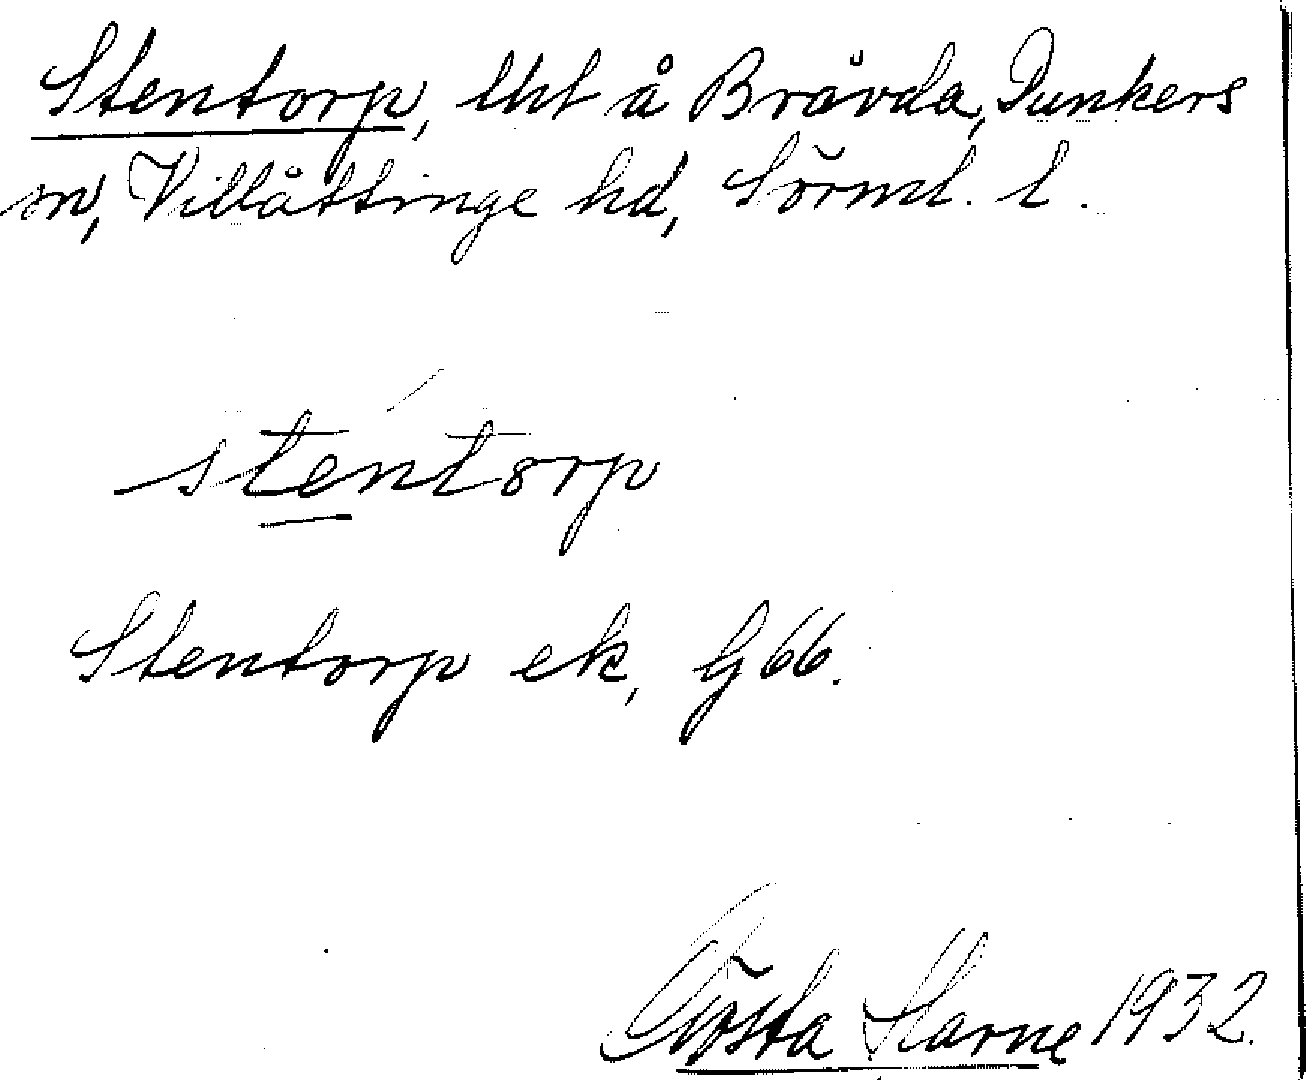 Stentorp, lht å Bråvda, Dunkers
sn, Villåttinge hd, Sörml. l.
sténtorp
Stentorp ek, G66.
Gösta Harne 1932.